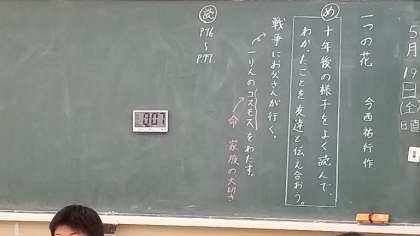 5月19日(金)
日直
一つの花
今西祐行作
め
十年後の様子をよく読んで、
わかったことを友達と伝え合おう。
戦争にお父さんが行く。
一りんのコスモスをわたす。
命 家族の大切さ
読
P.76
〜
P.77